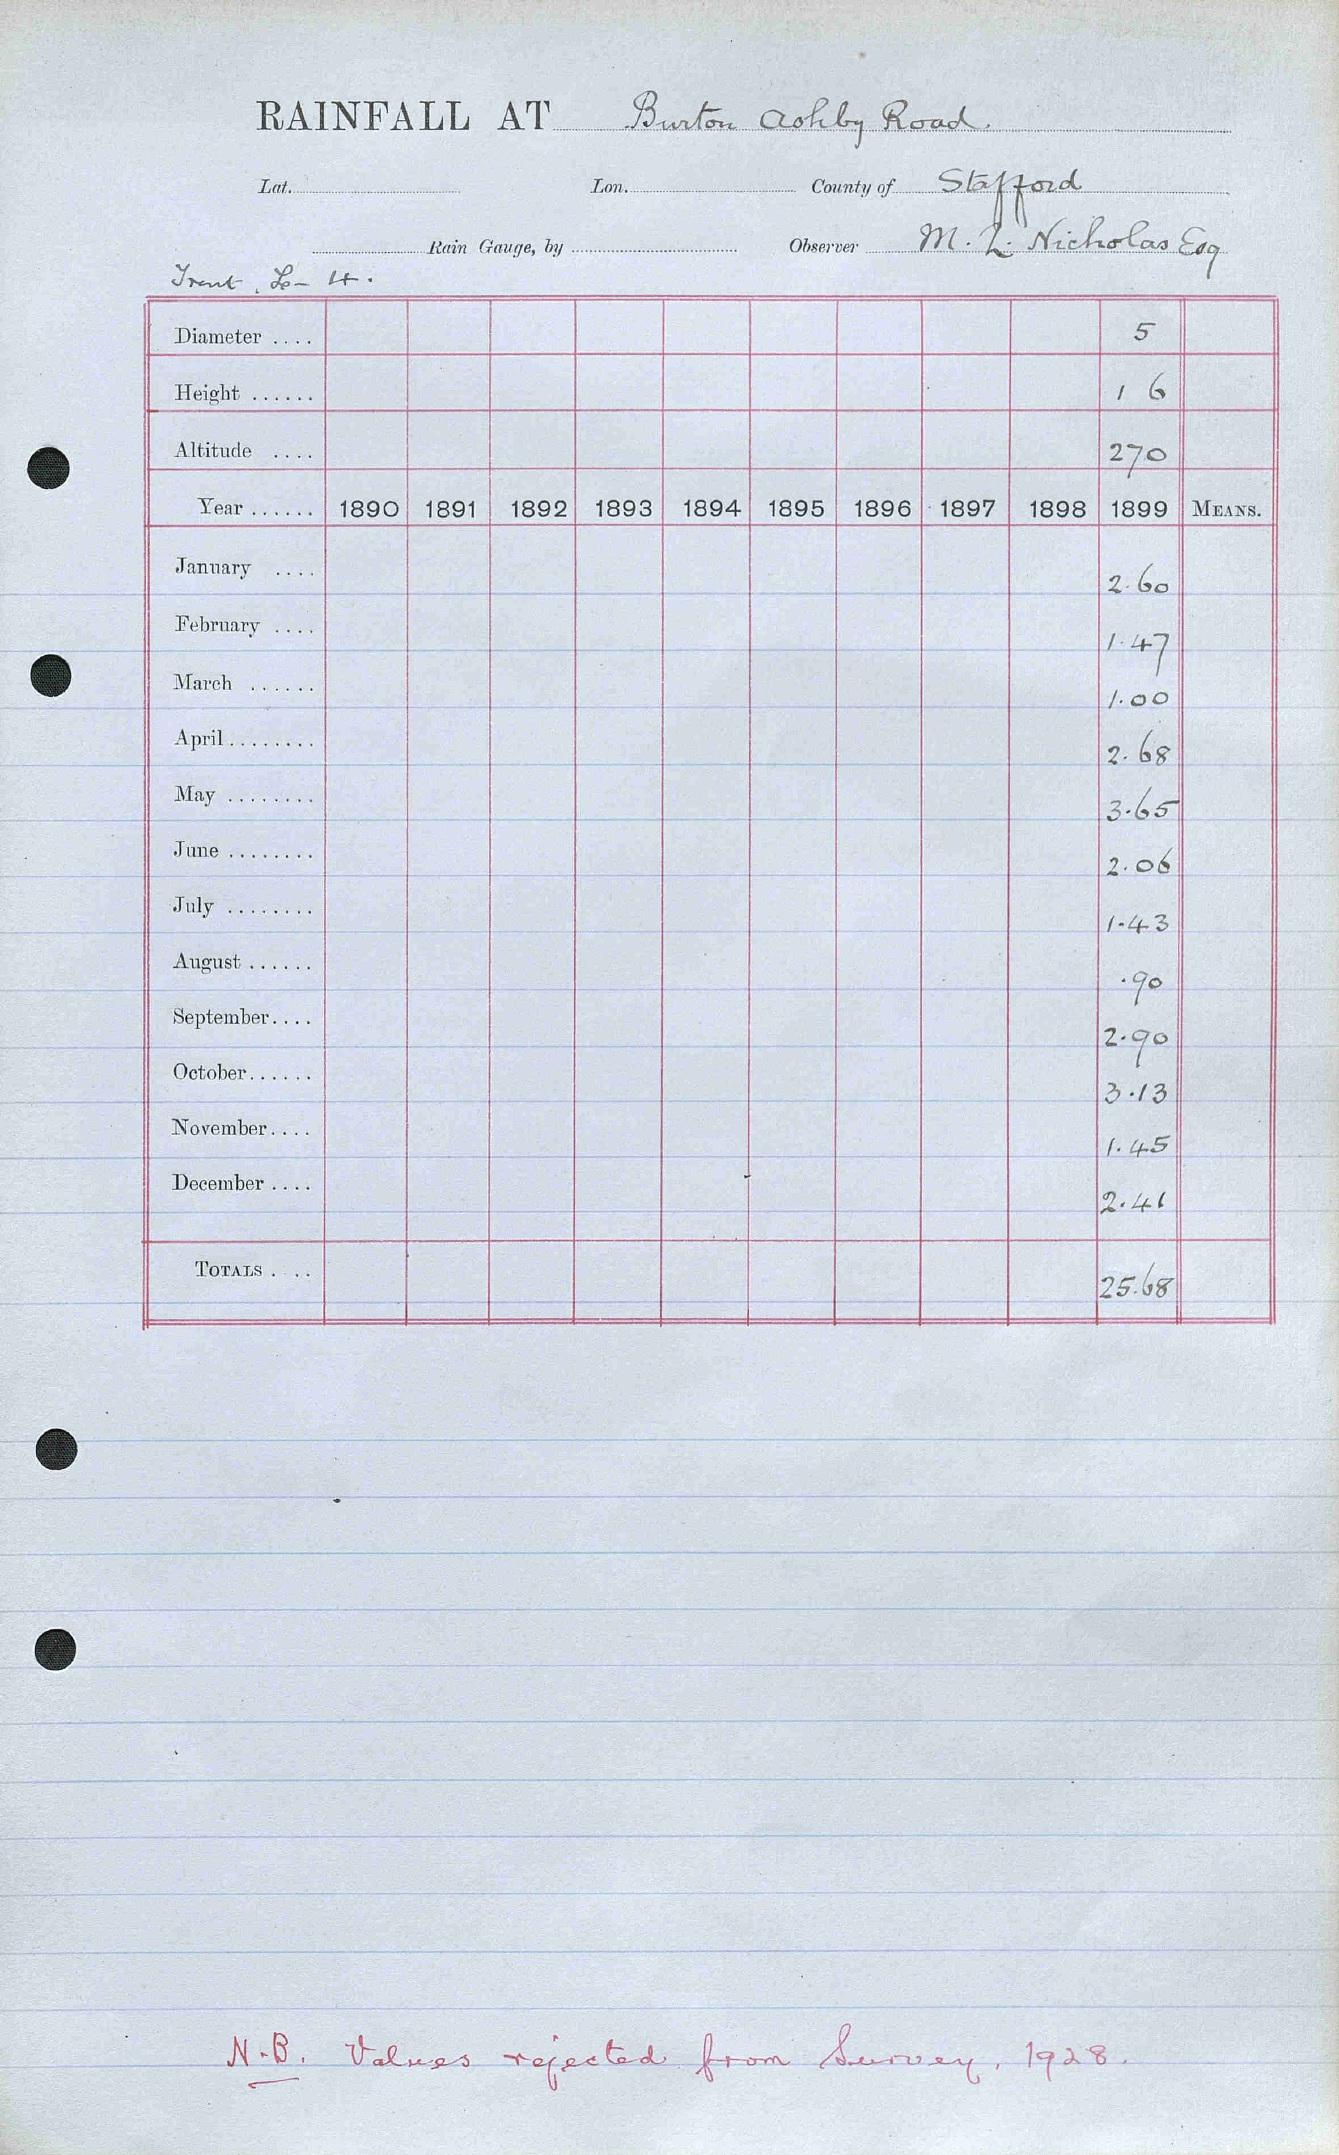 RAINFALL AT Burton Ashby Road
Lat. Lon. County of Stafford
Rain Gauge, by Observer M. L. Nicholas Esq
Trent. Lo- 4.
Diameter .... 5
Height ...... 1 6
Altitude .... 270
Year ...... 1890 1891 1892 1893 1894 1895 1896 1897 1898 1899 MEANS.
January .... 2.60
February .... 1.47
March ...... 1.00
April ........ 2.68
May ........ 3.65
June ........ 2.06
July ........ 1.43
August ...... .90
September.... 2.90
October...... 3.13
November.... 1.45
December .... 2.41
TOTALS .... 25.68
N.B. Values rejected from Survey, 1928.